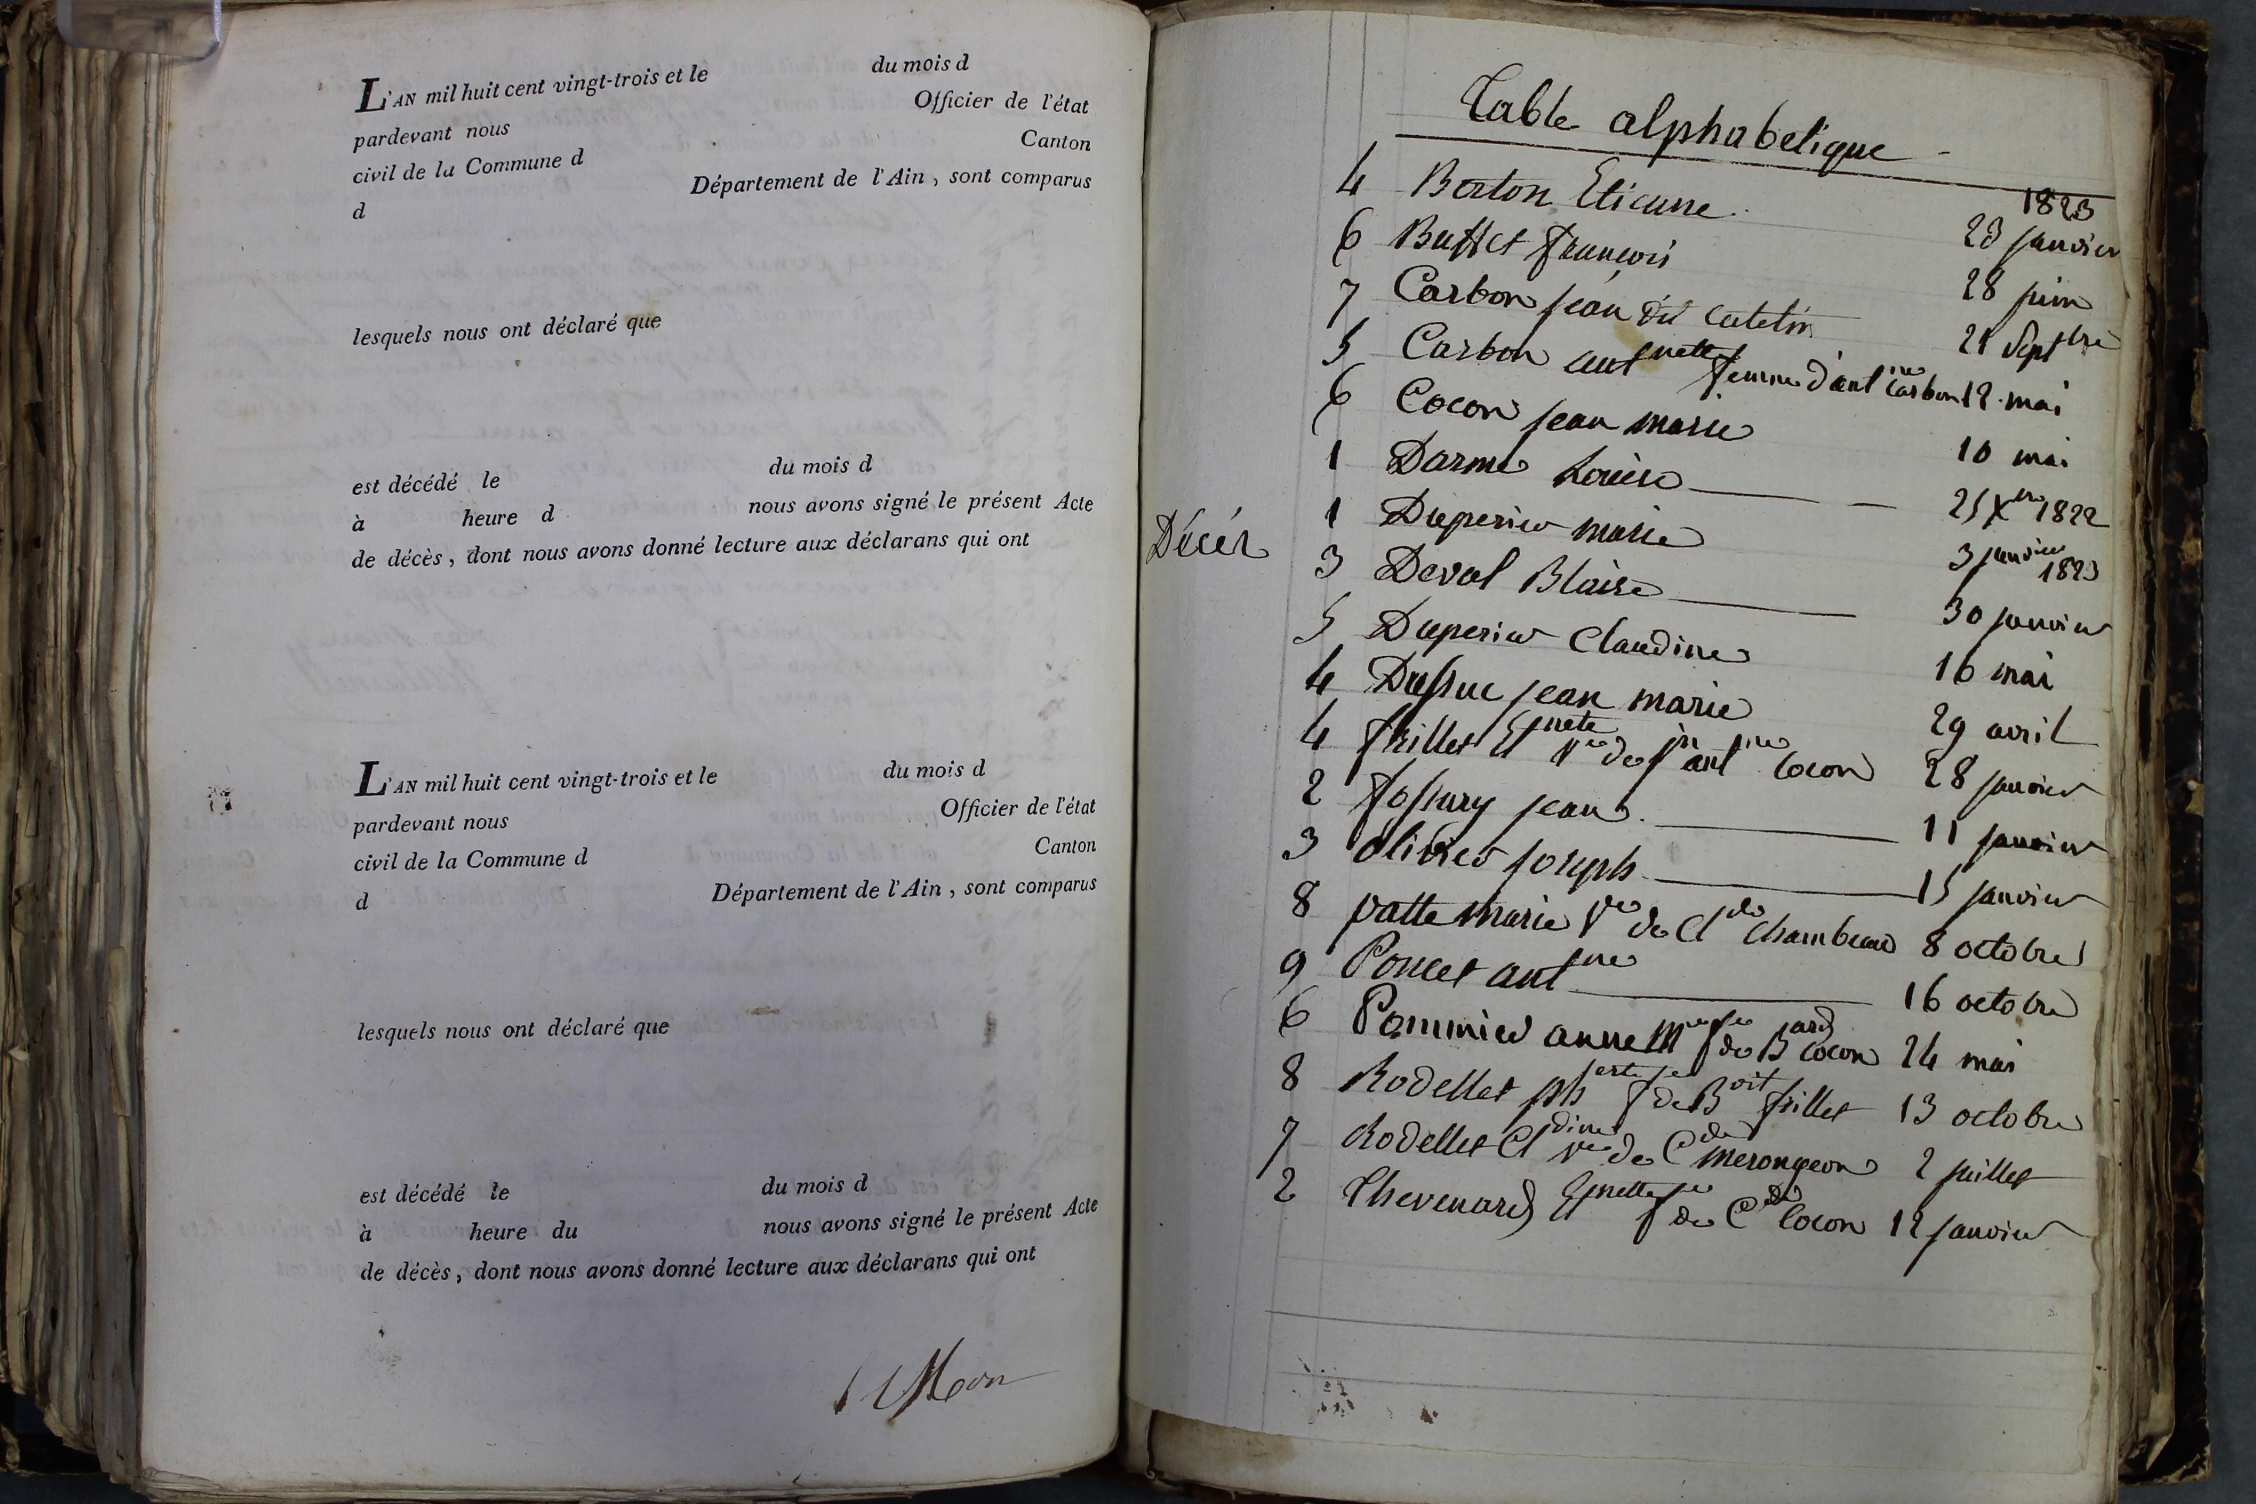 L'AN mil huit cent vingt-trois et le du mois d
pardevant nous Officier de l'état
civil de la Commune d Canton
d Département de l'Ain, sont comparus
lesquels nous ont déclaré que
est décédé le du mois d
à heure d nous avons signé le présent Acte
de décès, dont nous avons donné lecture aux déclarans qui ont
L'AN mil huit cent vingt-trois et le du mois d
pardevant nous Officier de l'état
civil de la Commune d Canton
d Département de l'Ain, sont comparus
lesquels nous ont déclaré que
est décédé le du mois d
à heure du nous avons signé le présent Acte
de décès, dont nous avons donné lecture aux déclarans qui ont
Table alphabetique
1823
4 Berton Etienne 23 janvier
6 Buffet françois 28 juin
7 Carbon jean dit catelin 21 Septbre
5 Carbon antnette femme d'antne Carbon 12 mai
6 Cocon jean marie 10 mai
1 Darme Louise 25 Xbre 1822
Décès
1 Duperier marie 3 janvier 1823
3 Deval Blaise 30 janvier
5 Duperier Claudine 16 mai
4 Dussuc jean marie 29 avril
4 frillet Etnete ve de jn antne Cocon 28 janvier
2 fossury jean 11 janvier
3 olivier joseph 15 janvier
8 patte marie Ve de Clde Chambeau 8 octobre
9 Poncet antne 16 octobre
6 Pommier anne Mie fe de Bard Cocon 24 mai
8 Rodellet phserte fe de Boit frillet 13 octobre
7 Rodellet Cldine ve de Cde merongeon 2 juillet
2 Thevenard Etnette fe de Cde Cocon 12 janvier